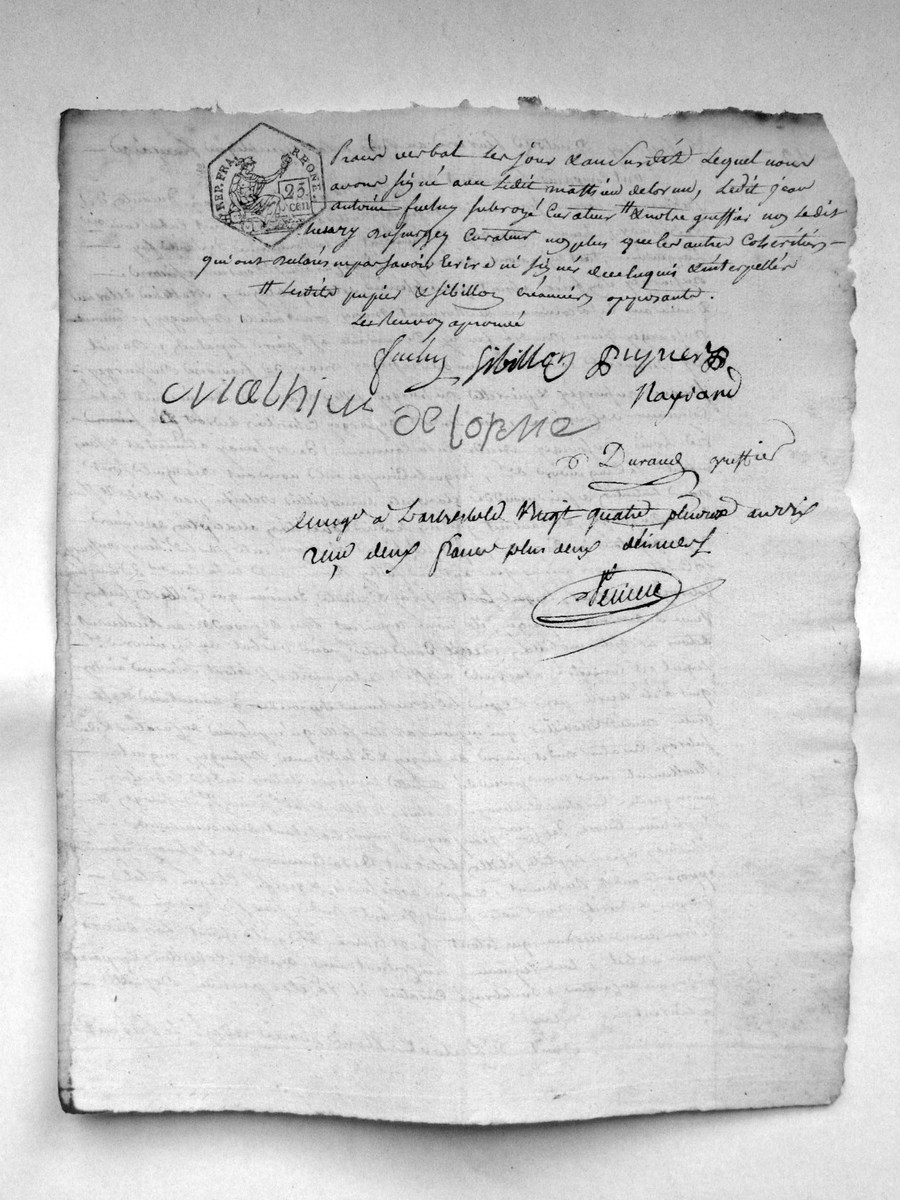 REP. FRA. RHONE.
25 cen
verbal les jour & an susdit lequel nous
avons signé avec ledit mathieu delorme, ledit jean
antoine subrogé curateur # & notre greffier non ledit
curateur non plus que les autres cohéritiers
qui ont déclaré ne pas savoir écrire ni signer de ce enquis & interpellés
# lesdits papier & sibillon créanciers opposants.
les renvoy aprouvé
sibillon
Mathieu
delorme
Durand greffier
à Larbresle le vingt quatre pluviose an dix
reçu deux francs plus deux décimes